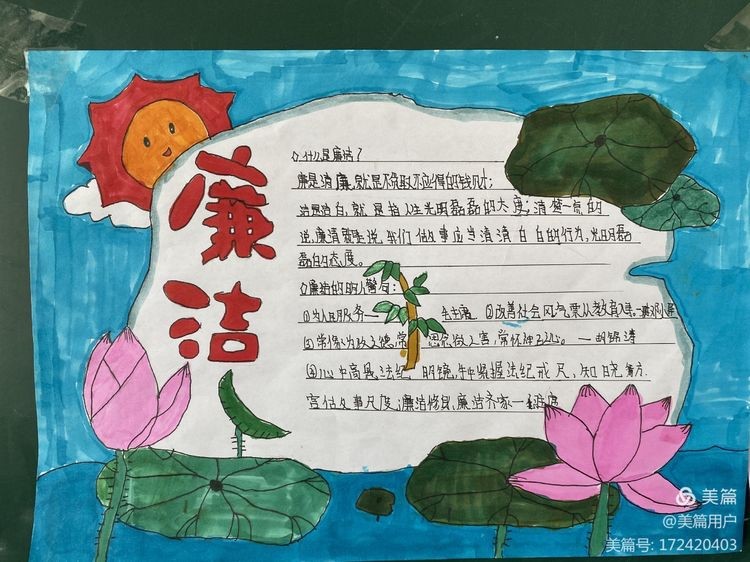 廉洁
①.什么是廉洁?
廉是清廉,就是不贪取不应得的钱财;
洁是洁白,就是指人生光明磊磊的大度;清楚一点的
说,廉洁就是说,我们做事应当清清白白的行为,光明磊
磊的态度。
②廉洁的明人警句:
①为人民服务一 毛主席 ②改善社会风气要从教育入手。
③常修为政之德,常思 做之害,常怀 己心。一胡锦涛
④心中高悬法纪 明镜,手中紧握法纪戒尺,知晓
官做事尺度,廉洁修身,廉洁齐家一
美篇
@美篇用户
美篇号: 172420403